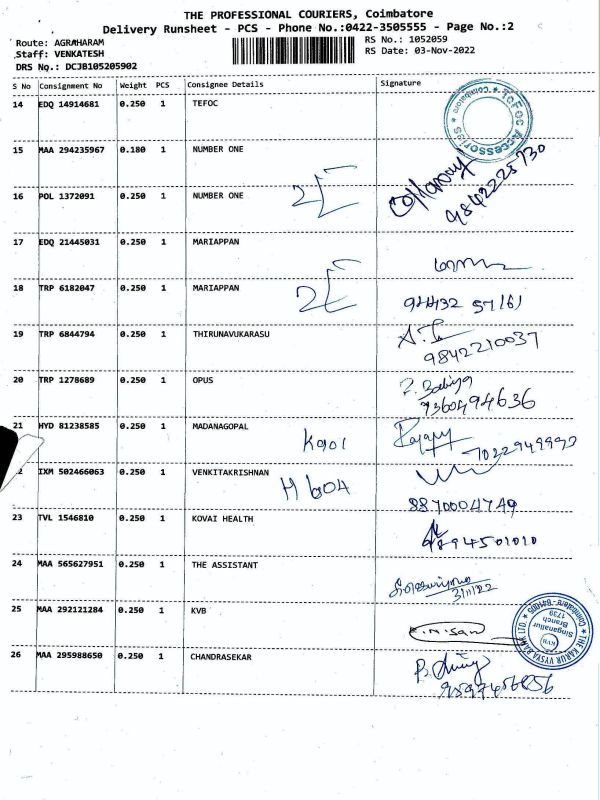 THE PROFESSIONAL COURIERS, Coimbatore
Delivery Runsheet - PCS - Phone No.:0422-3505555 - Page No.:2
Route: AGRAHARAM
Staff: VENKATESH
DRS No.: DCJB105205902
RS No.: 1052059
RS Date: 03-Nov-2022
S No Consignment No Weight PCS Consignee Details Signature
14 EDQ 14914681 0.250 1 TEFOC
TeFoc Accessories * Coimbatore *
15 MAA 294235967 0.180 1 NUMBER ONE
16 POL 1372091 0.250 1 NUMBER ONE
9842228730
17 EDQ 21445031 0.250 1 MARIAPPAN
18 TRP 6182047 0.250 1 MARIAPPAN
94432 57161
19 TRP 6844794 0.250 1 THIRUNAVUKARASU
9842210037
20 TRP 1278689 0.250 1 OPUS
7360494636
21 HYD 81238585 0.250 1 MADANAGOPAL
K901
7022949990
IXM 502466063 0.250 1 VENKITAKRISHNAN
H 604
8870004749
23 TVL 1546810 0.250 1 KOVAI HEALTH
9894501010
24 MAA 565627951 0.250 1 THE ASSISTANT
3/11/22
25 MAA 292121284 0.250 1 KVB
THE KARUR VYSYA BANK LTD. * Coimbatore-641005 *
KVB
Singanallur
Branch
1739
26 MAA 295988650 0.250 1 CHANDRASEKAR